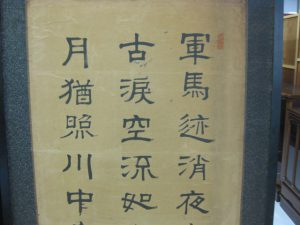 軍馬迹消夜
古淚空流如
月猶照川中